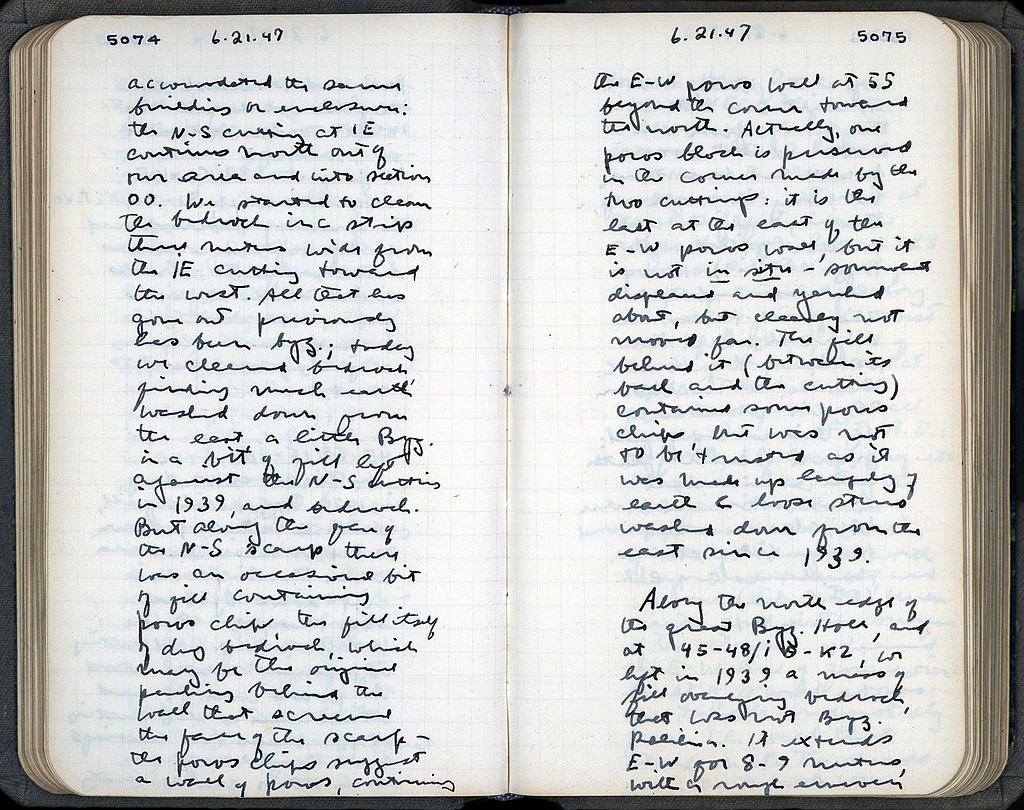 5074 6.21.47
accomodated the same
building or enclosure:
the N-S cutting at 1E
continues north out of
our area and into section
OO. We started to clean
the bedrock in a strip
three meters wide from
the 1E cutting toward
the west. All that has
gone out previously
has been byz.; today
we cleaned bedrock
finding much earth
washed down from
the east a little Byz.
in a bit of fill left
against the N-S cutting
in 1939, and bedrock.
But along the face of
the N-S scarp there
was an occasional bit
of fill containing
poros chips the fill itself
of dug bedrock, which
may be the original
packing behind the
wall that screened
the face of the scarp –
the poros chips suggest
a wall of poros, continuing
6.21.47 5075
the E-W poros wall at 55
beyond the corner toward
the north. Actually, one
poros block is preserved
in the corner made by the
two cuttings: it is the
last at the east of the
E-W poros wall, but it
is not in situ – somewhat
displaced and yanked
about, but clearly not
moved far. The fill
behind it (between its
back and the cutting)
contained some poros
chips, but was not
to be trusted as it
was made up largely of
earth & loose stones
washed down from the
east since 1939.
Along the north edge of
the great Byz. Hole, and
at 45-48/ - K2, we
left in 1939 a mass of
fill overlying bedrock,
that was not Byz.
It extends
E-W for 8-9 meters,
with a rough